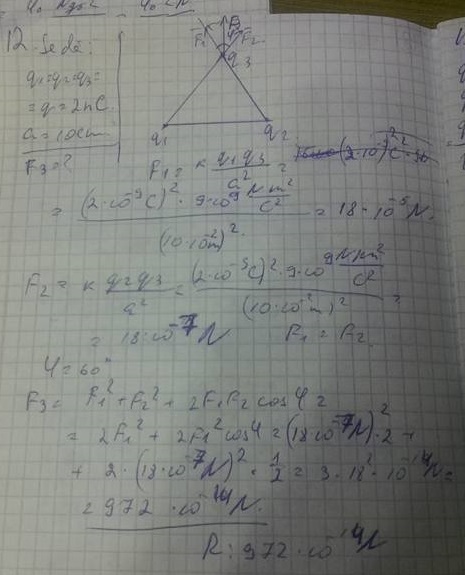 12. Se dă:
q1=q2=q3=
=q=2nC
a=10cm
F3=?
F3
F1 F2
q3
q1 q2
F1= k q1q3/a² =
= (2·10⁻⁹C)²·9·10⁹ Nm²/C² / (10·10⁻²m)² = 18·10⁻⁵N
F2= k q2q3/a² = (2·10⁻⁹C)²·9·10⁹ Nm²/C² / (10·10⁻²m)² =
= 18·10⁻⁷N F1=F2
φ=60°
F3= F1²+F2²+2F1F2 cosφ=
= 2F1²+2F1²cosφ=(18·10⁻⁷N)²·2+
+ 2·(18·10⁻⁷N)²·1/2= 3·18²·10⁻¹⁴N=
=972·10⁻¹⁴N.
R: 972·10⁻¹⁴N